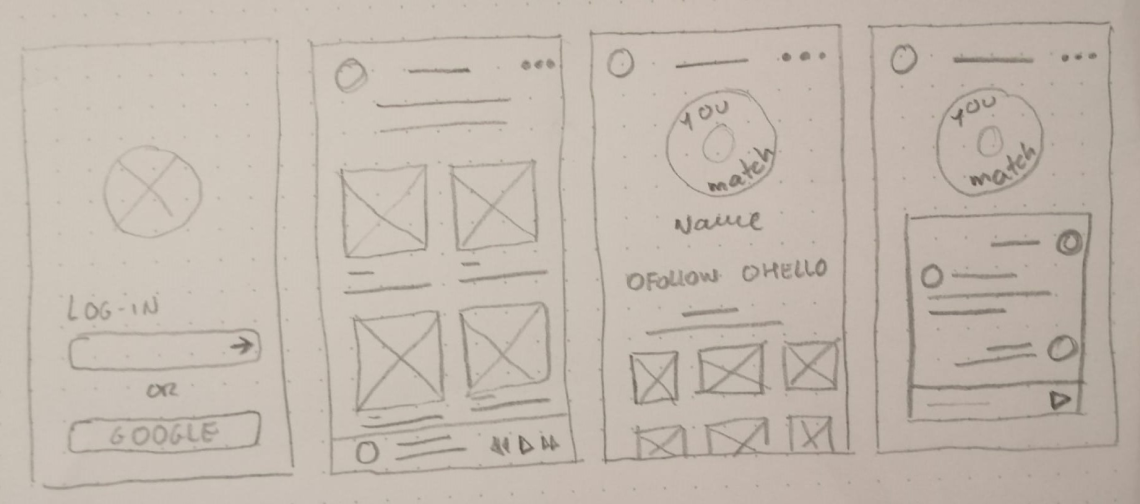 LOG-IN
OR
GOOGLE
you
match
Name
FOLLOW HELLO
you
match